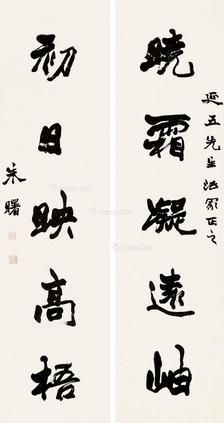 延五先生法家正之
曉霜凝遠岫
初日映高梧
朱曙